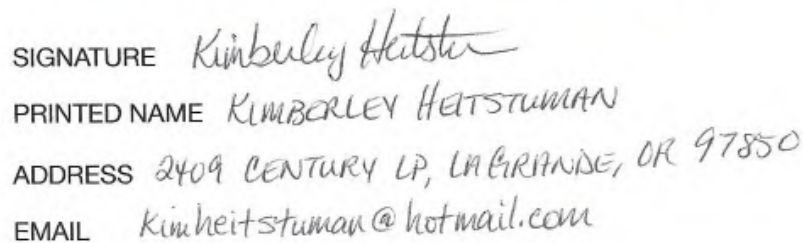 SIGNATURE Kimberley Heitstu
PRINTED NAME KIMBERLEY HEITSTUMAN
ADDRESS 2409 CENTURY LP, LAGRANDE, OR 97850
EMAIL Kimheitstuman@hotmail.com